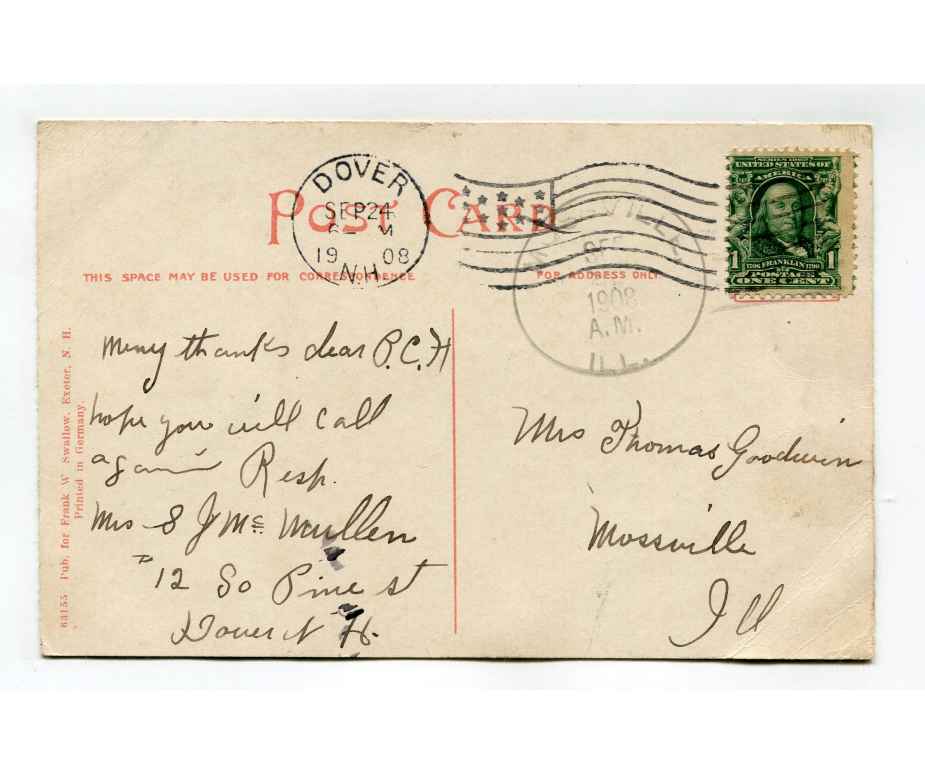 DOVER
SEP 24
6- M
19 08
N.H.
POST CARD
THIS SPACE MAY BE USED FOR CORRESPONDENCE
FOR ADDRESS ONLY
SERIES 1902
UNITED STATES OF
AMERICA
1706 FRANKLIN 1790
1 POSTAGE 1
ONE CENT
SEP
1908
A.M.
ILL.
Meny thanks dear P.C.H
hope you will call
again Resp.
Mrs S J Mc Mullen
12 So Pine st
Dover N H.
Mrs Thomas Goodwin
Mossville
Ill
63155 Pub. for Frank W. Swallow, Exeter, N. H.
Printed in Germany.